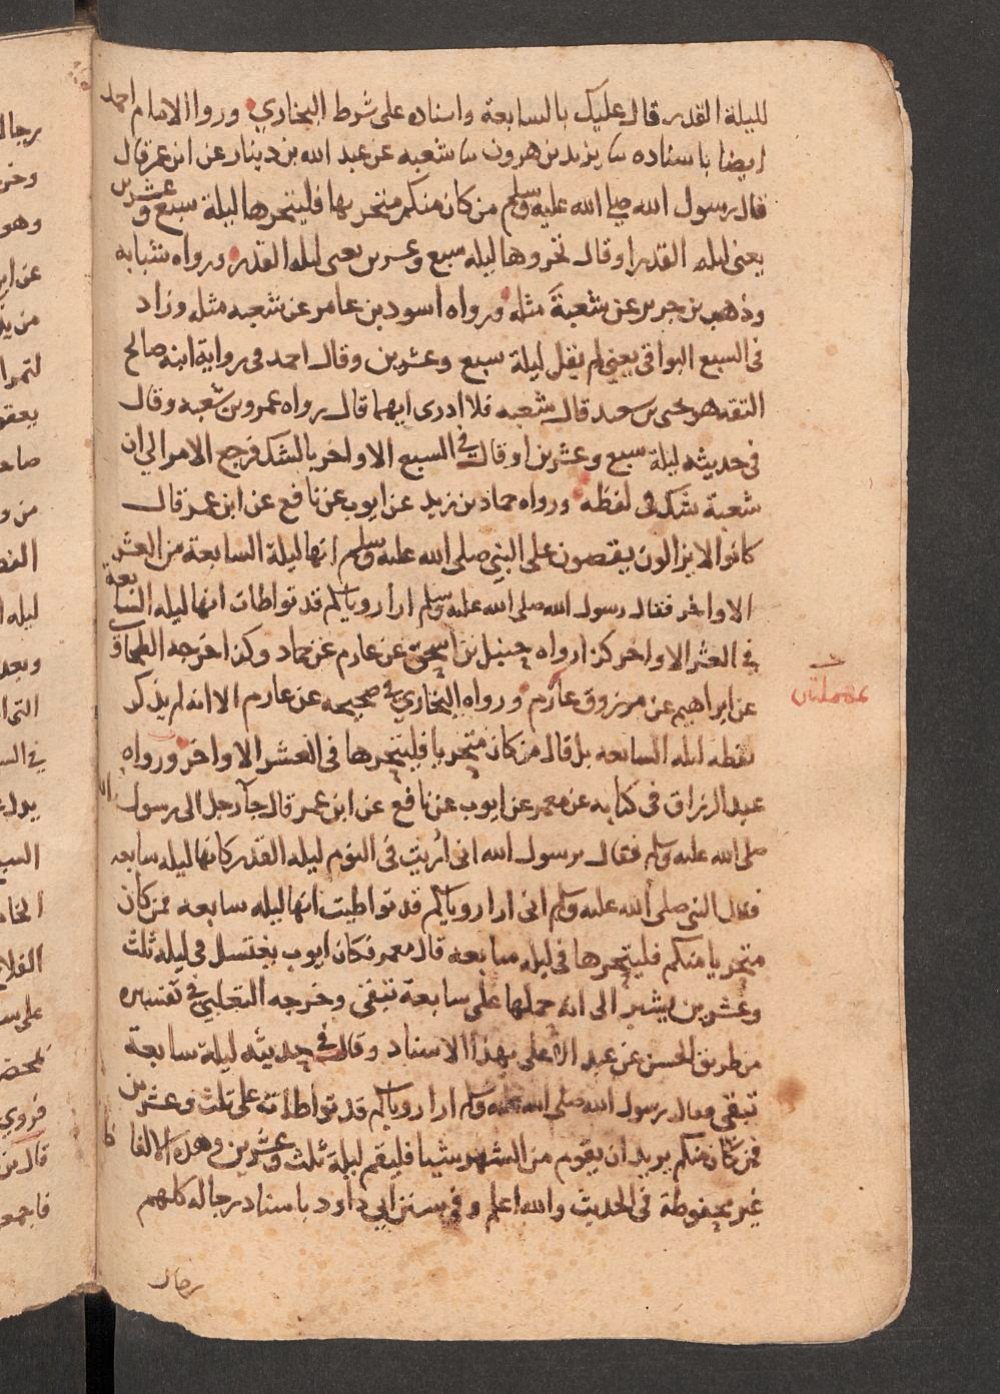 لليلة القدر قال عليك بالسابعة واسناده على شرط البخاري وروا الامام احمد
ايضا باسناده ثنا يزيد بن هرون ثنا شعبه عن عبد الله بن دينار عن ابن عمر قال
قال رسول الله صلى الله عليه وسلم من كان منكم متحريها فليتحرها ليلة سبع وعشرين
يعنى ليله القدر او قال تحروها ليله سبع وعشرين يعنى ليله القدر ورواه شبابه
وذهب بن جرير عن شعبة مثله ورواه اسود بن عامر عن شعبه مثله وزاد
فى السبع البواقى يعنى لم يقل ليلة سبع وعشرين وقال احمد فى رواية ابنه صالح
الثقه هو يحيى بن سعيد قال شعبه فلا ادرى ايهما قال رواه عمرو بن شعبه وقال
فى حديثه ليلة سبع وعشرين او قال فى السبع الاواخر بالشك فرجع الامر الى ان
شعبة شك فى لفظه ورواه حماد بن زيد عن ايوب عن نافع عن ابن عمر قال
كانوا لا يزالون يقصون على النبى صلى الله عليه وسلم انها ليلة السابعة من العشر
الاواخر فقال رسول الله صلى الله عليه وسلم ارا روياكم قد تواطات انها ليله السابعة
فى العشر الاواخر كذا رواه حنبل بن اسحق عن عارم عن حماد وكذا خرجه الطحاوى
عن ابراهيم عن مرزوق عارم ورواه البخارى فى صحيحه عن عارم الا انه لم يذكر
لفظه ليله السابعه بل قال من كان متحريا فليتحرها فى العشر الاواخر ورواه
عبد الرزاق فى كتابه عن معمر عن ايوب عن نافع عن ابن عمر قال جا رجل الى رسول الله
صلى الله عليه وسلم فقال يرسول الله انى اريت فى النوم ليله القدر كانها ليله سابعه
فقال النبى صلى الله عليه وسلم انى ارا روياكم قد تواطيت انها ليله سابعه فمن كان
متحريا منكم فليتحرها فى ليله سابعه قال معمر فكان ايوب يغتسل فى ليله ثلث
وعشرين يشير الى انه حملها على سابعة تبقى وخرجه الثعلبى فى تفسيره
من طريق الحسن عن عبد الاعلى بهذا الاسناد وقال فى حديثه ليلة سابعة
تبقى فقال رسول الله صلى الله عليه وسلم ارا روياكم قد تواطات على ثلث وعشرين
فمن كان منكم يريد ان يقوم من الشهر شيا فليقم ليلة ثلث وعشرين وهذه الالفاظ
غير محفوظة فى الحديث والله اعلم وفى سنن ابى داود باسناد رجاله كلهم
رجال